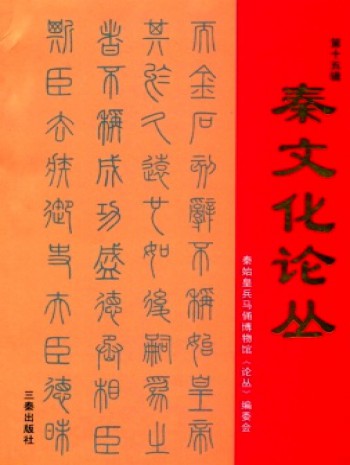 第十五辑
秦文化论丛
秦始皇兵马俑博物馆《论丛》编委会
而金石刻辭不稱始皇帝
其於久遠也如後嗣為之
者不稱成功盛德丞相臣
斯臣去疾御史夫臣德昧
三秦出版社